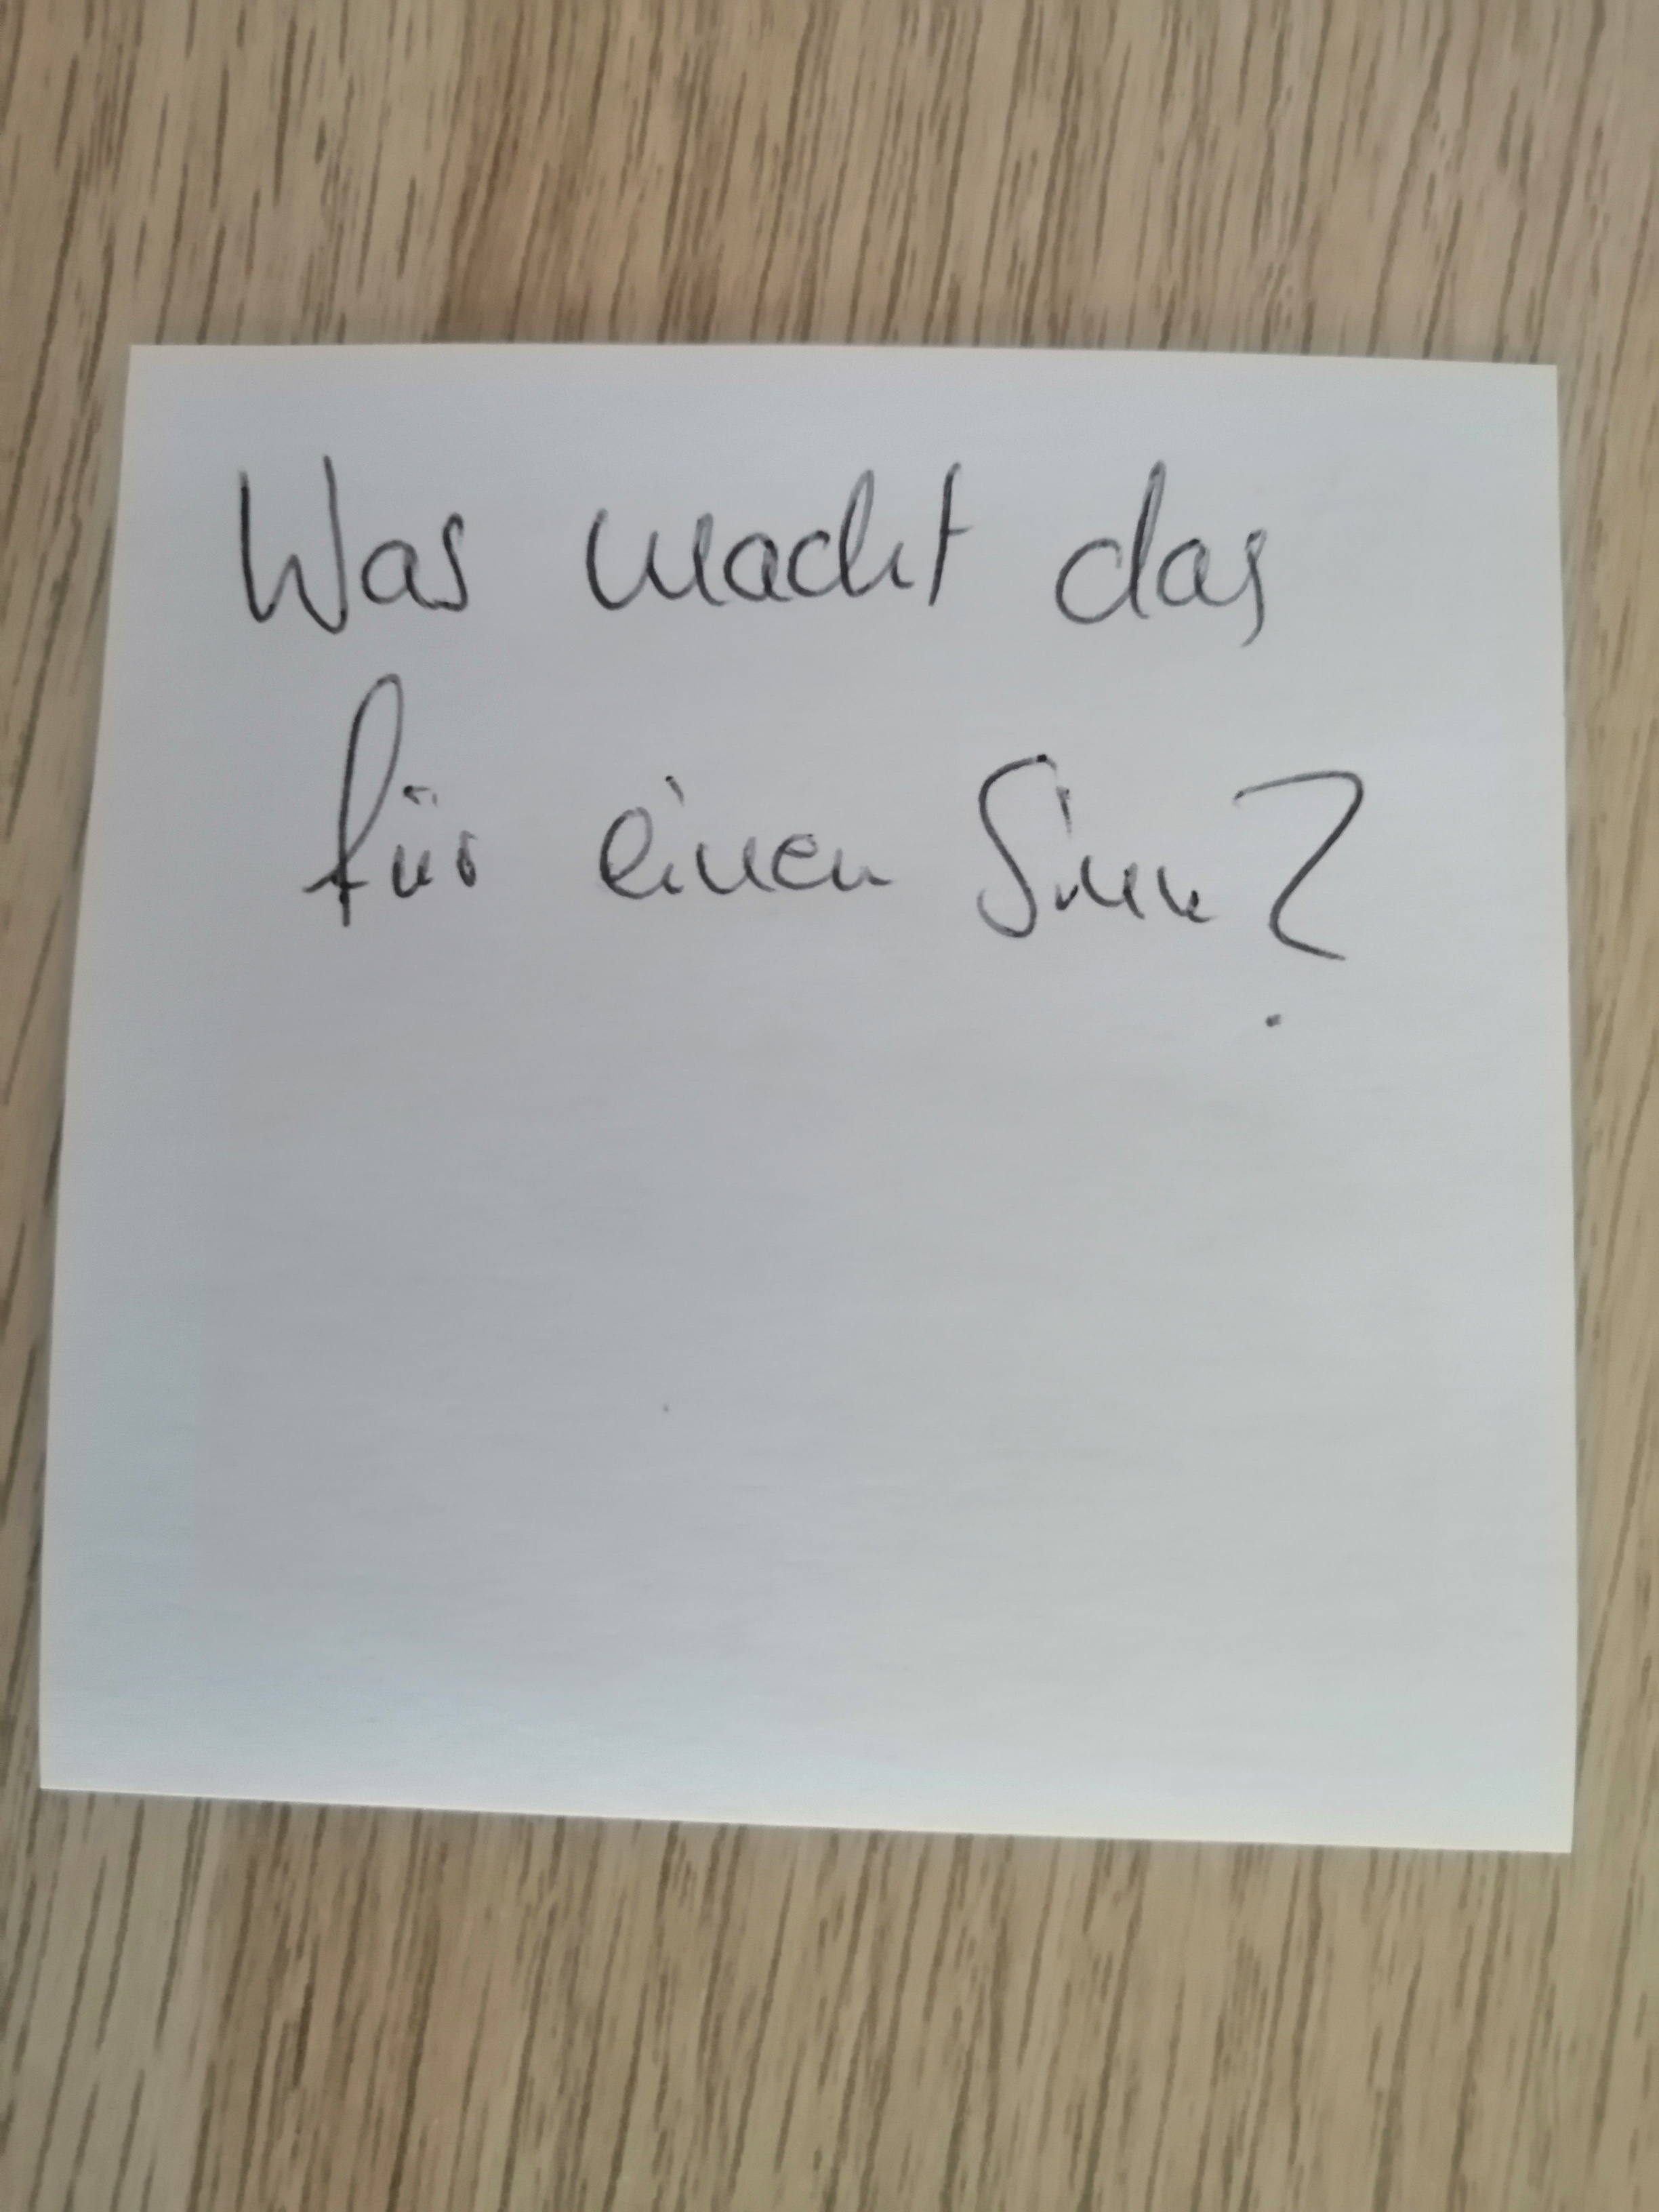 Was macht das
für einen Sinn?